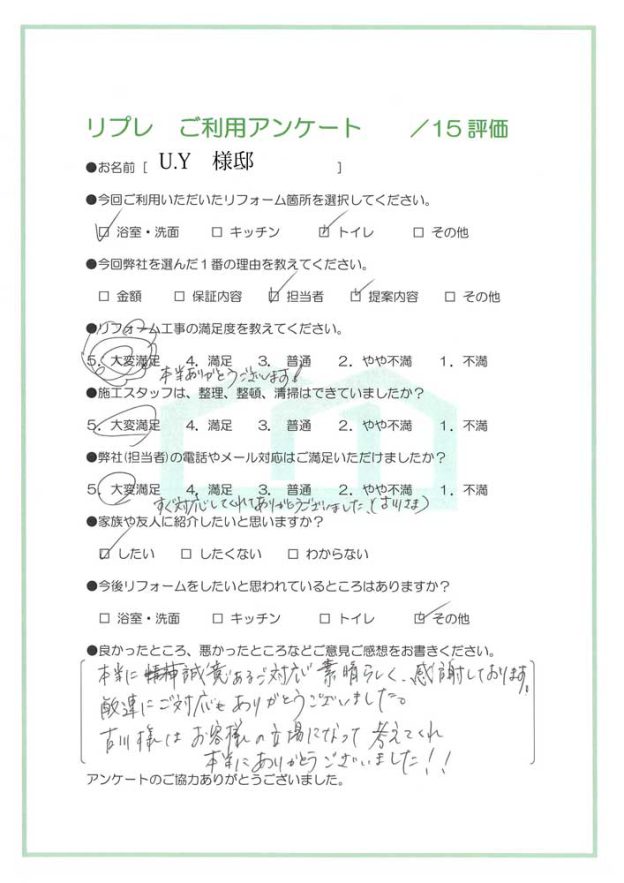 リプレ　ご利用アンケート　／15 評価
●お名前 [ U.Y　様邸 ]
●今回ご利用いただいたリフォーム箇所を選択してください。
☑ 浴室・洗面　□ キッチン　☑ トイレ　□ その他
●今回弊社を選んだ１番の理由を教えてください。
□ 金額　□ 保証内容　☑ 担当者　☑ 提案内容　□ その他
●リフォーム工事の満足度を教えてください。
5. 大変満足　4. 満足　3. 普通　2. やや不満　1. 不満
本当ありがとうございます!
●施工スタッフは、整理、整頓、清掃はできていましたか？
5. 大変満足　4. 満足　3. 普通　2. やや不満　1. 不満
●弊社(担当者)の電話やメール対応はご満足いただけましたか？
5. 大変満足　4. 満足　3. 普通　2. やや不満　1. 不満
すぐ対応してくれてありがとうございました。(吉川さま)
●家族や友人に紹介したいと思いますか？
☑ したい　□ したくない　□ わからない
●今後リフォームをしたいと思われているところはありますか？
□ 浴室・洗面　□ キッチン　□ トイレ　☑ その他
●良かったところ、悪かったところなどご意見ご感想をお書きください。
本当に誠意あるご対応 素晴らしく、感謝しております。
敏速にご対応もありがとうございました。
吉川様はお客様の立場になって考えてくれ
本当にありがとうございました!!
アンケートのご協力ありがとうございました。